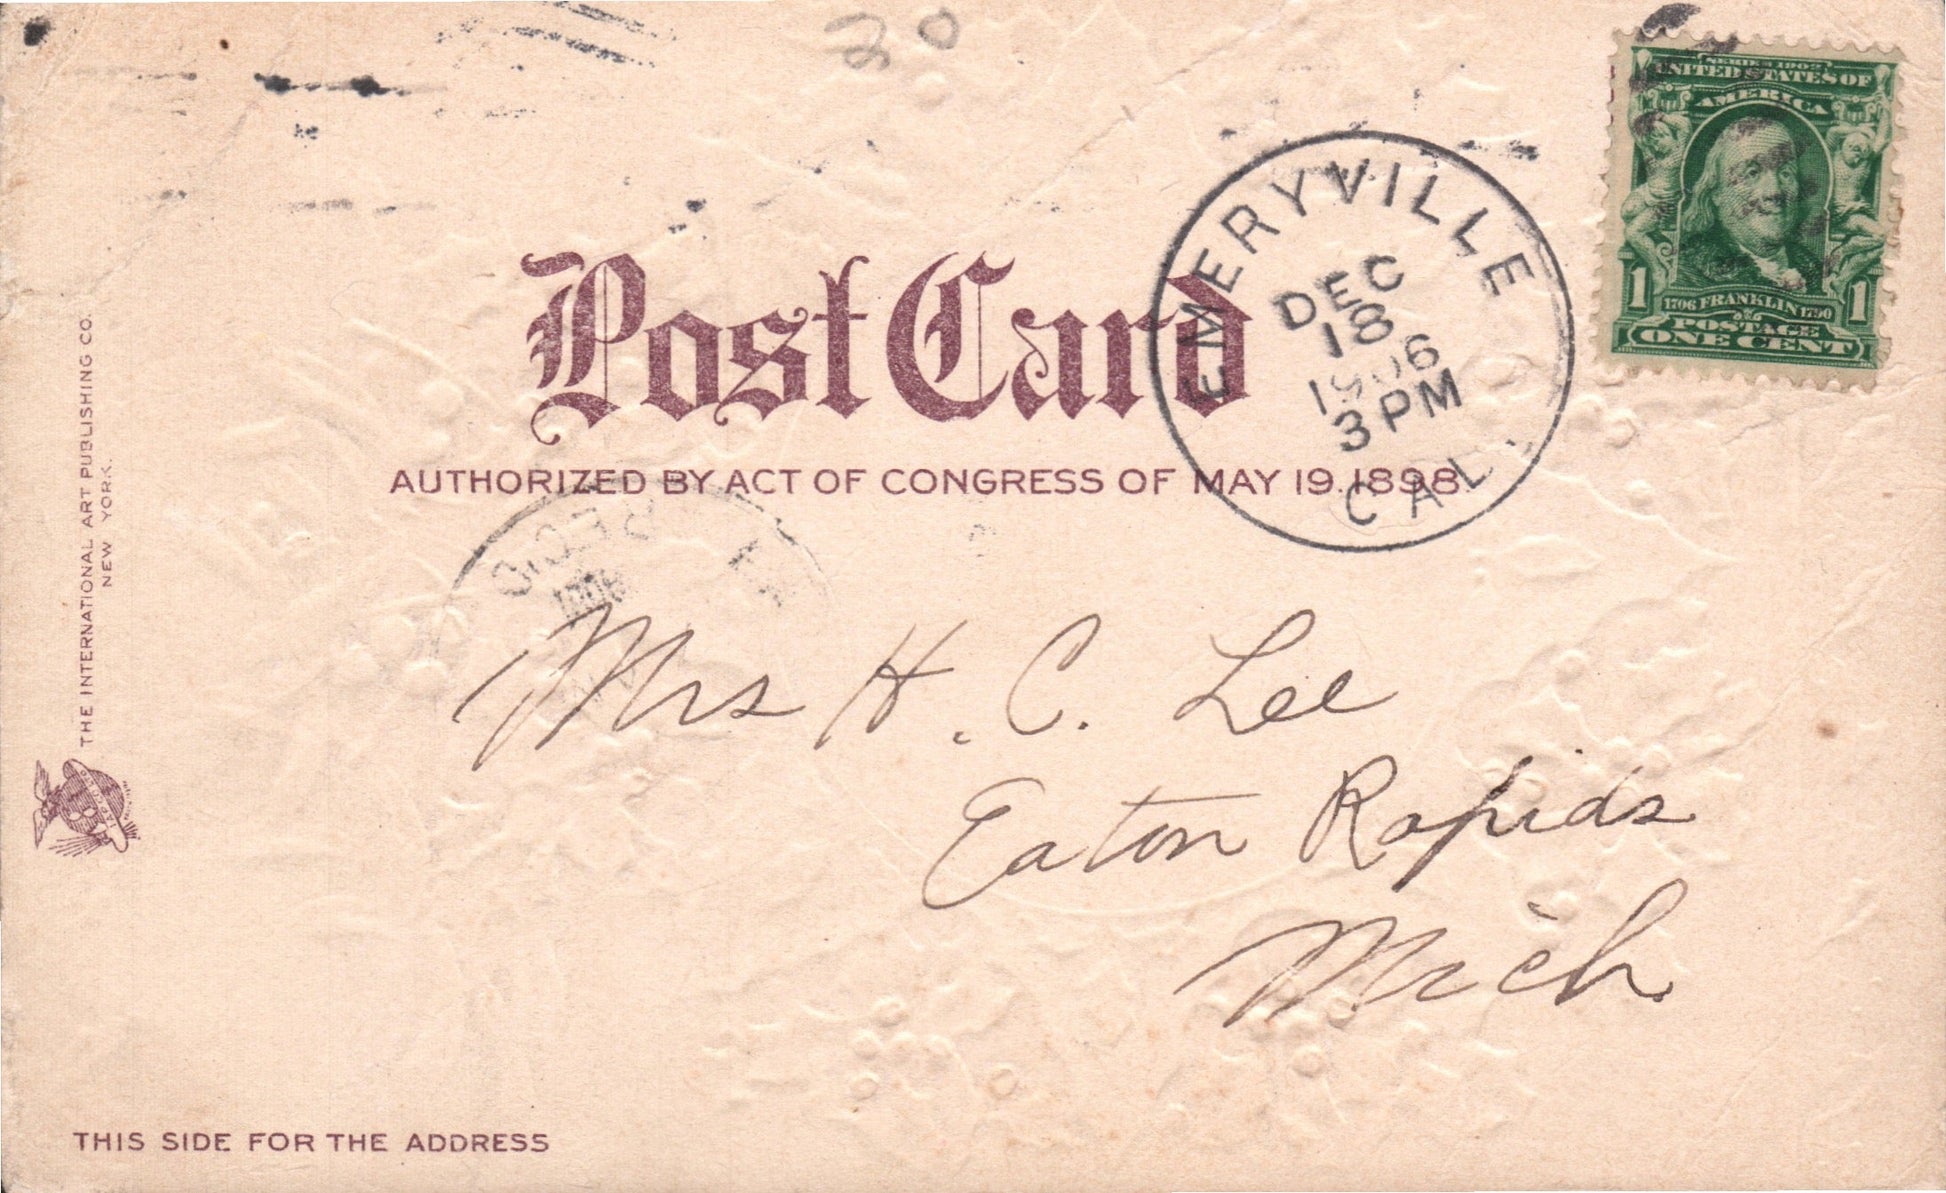 20
SERIES 1902
UNITED STATES OF
AMERICA
1 1706 FRANKLIN 1790 1
POSTAGE
ONE CENT
EMERYVILLE
DEC
18
1906
3 PM
CAL.
Post Card
AUTHORIZED BY ACT OF CONGRESS OF MAY 19. 1898.
REC'D
Mrs H. C. Lee
Eaton Rapids
Mich.
THE INTERNATIONAL ART PUBLISHING CO.
NEW YORK.
THIS SIDE FOR THE ADDRESS